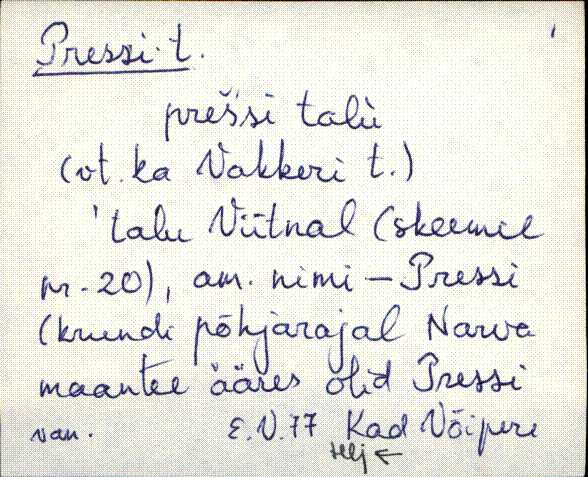 Pressi t.
preš'si talù
(vt. ka Vakkeri t.)
'talu Viitnal (skeemil
nr. 20), am. nimi – Pressi
(krundi põhjarajal Narva
maantee ääres olid Pressi
van. E.V. 77 Kad Võipere
selj ←